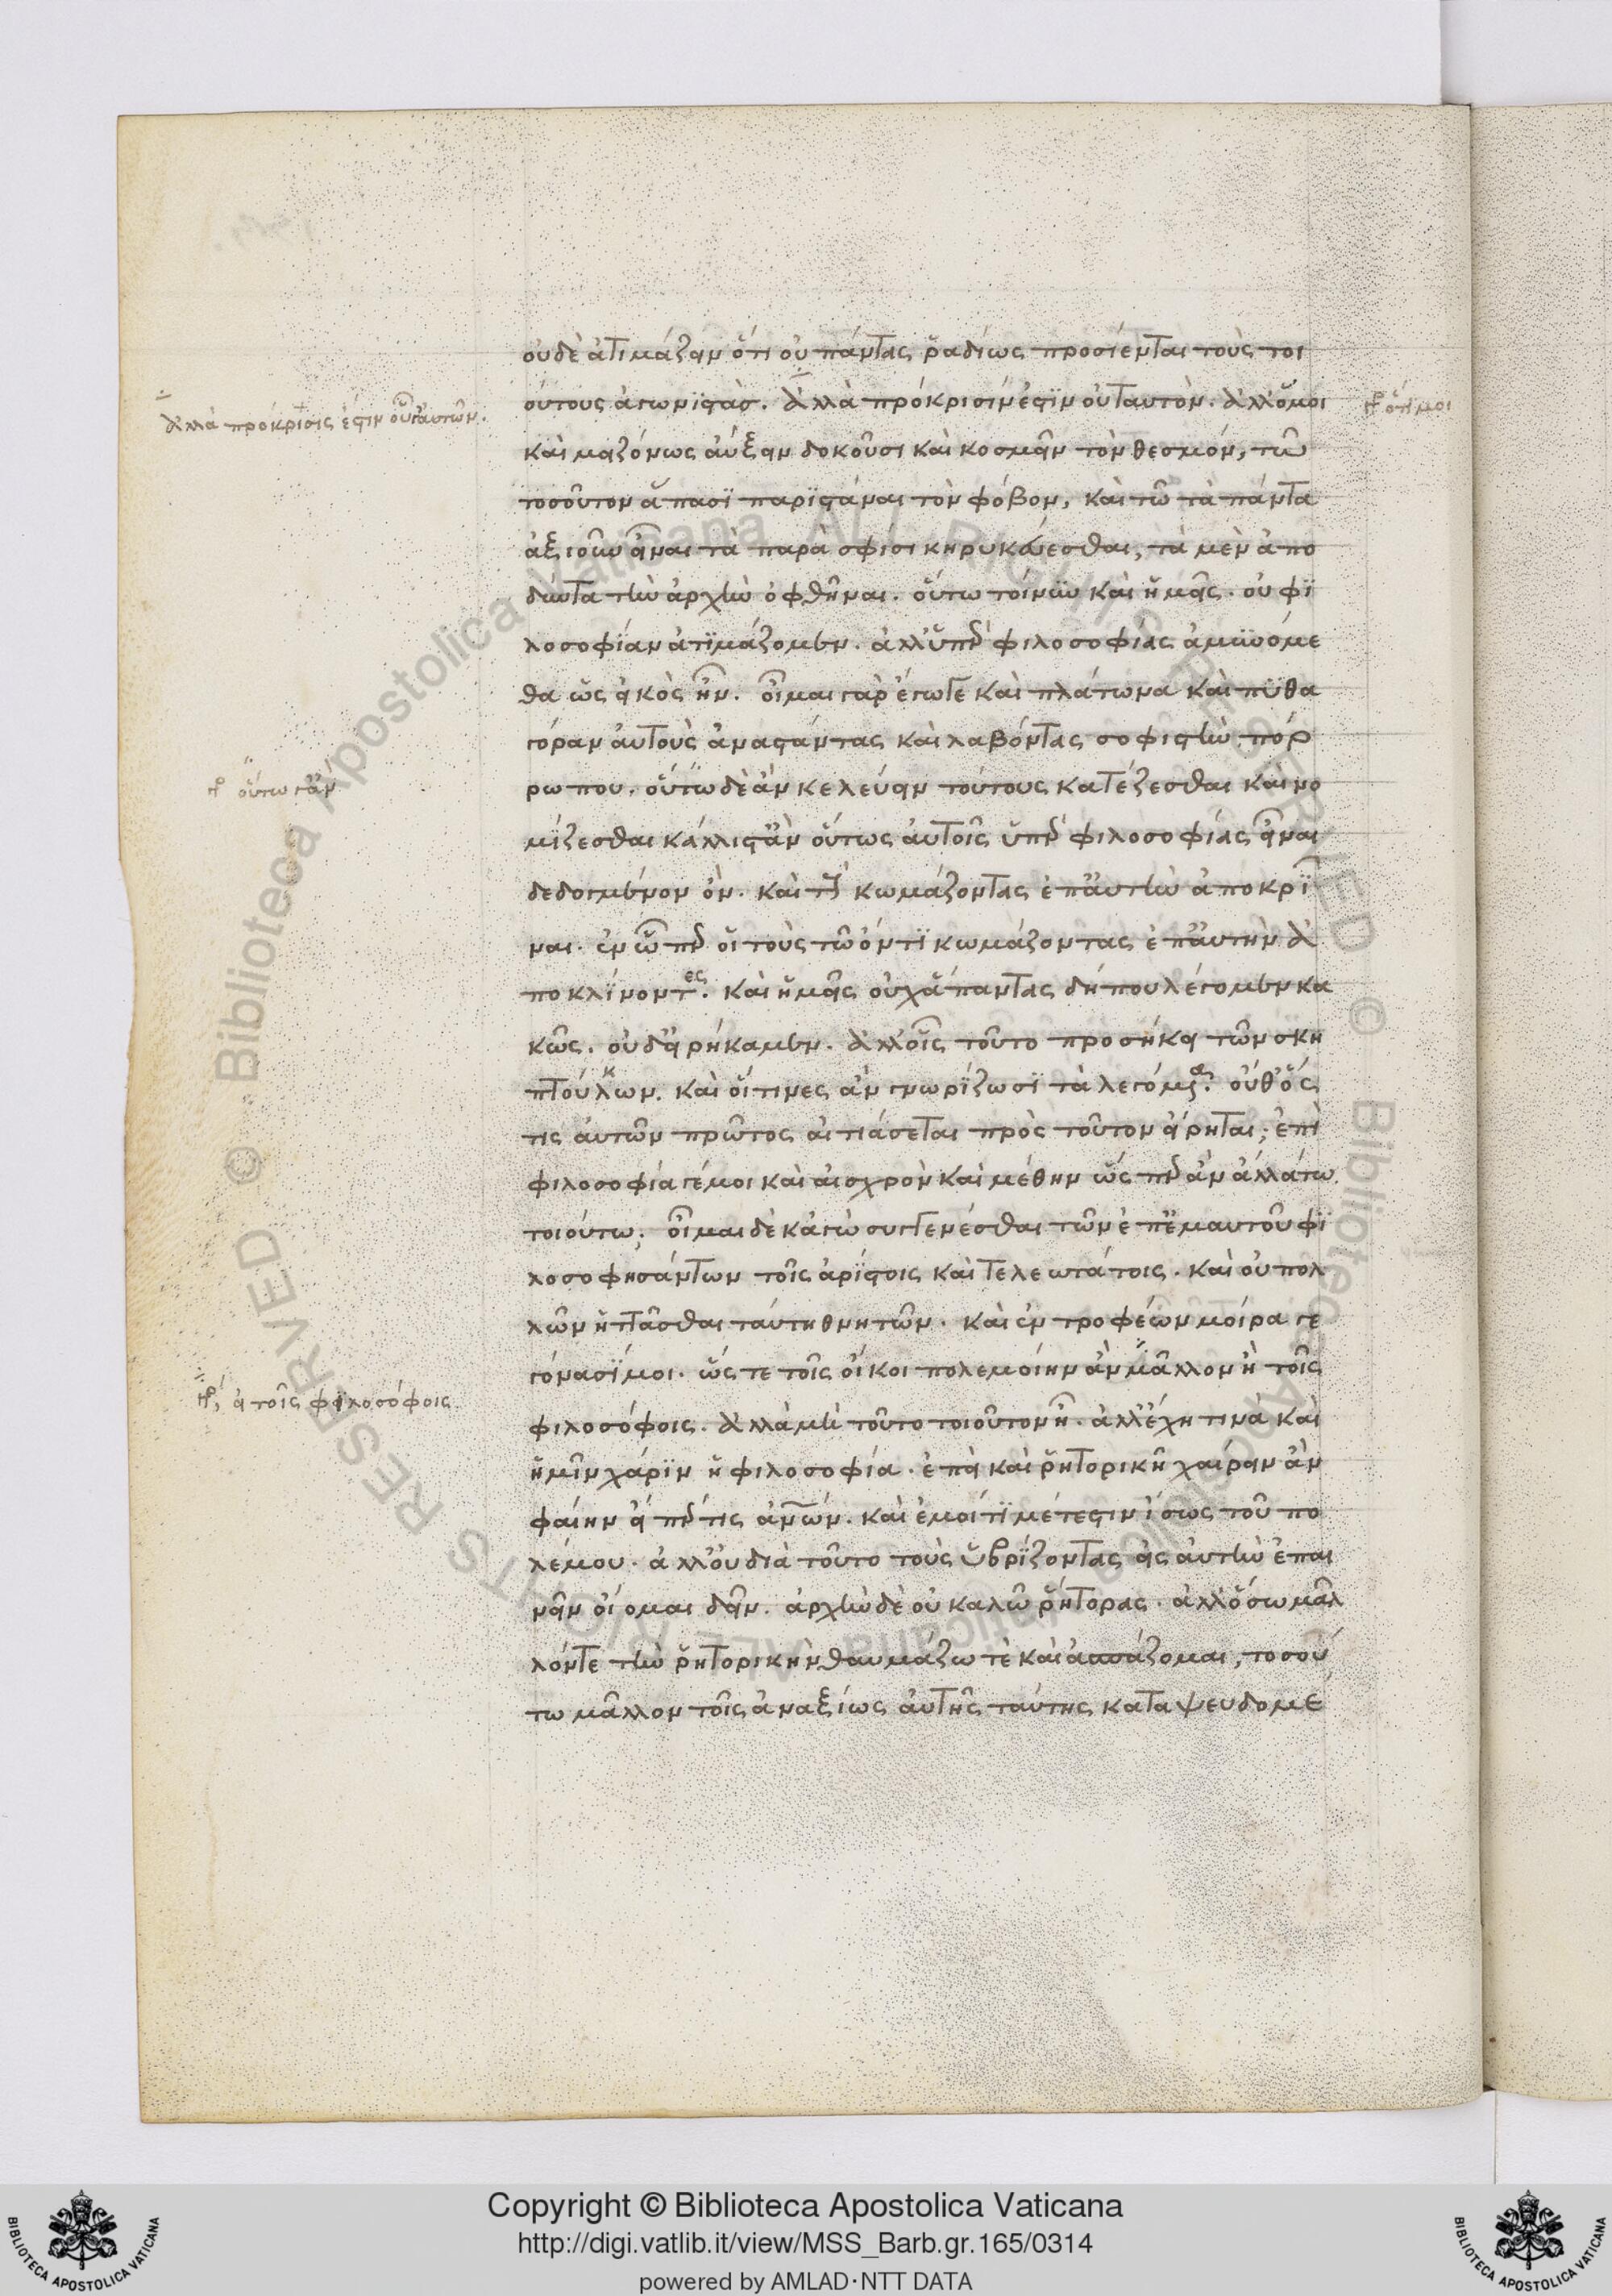 οὐδὲ ἀτιμάζειν ὅτι οὐ πάντας ῥαδίως προσίενται τοὺς τοι
ούτους ἀγωνιστὰσ. ἀλλὰ πρόκρισίν ἐστϊν οὑταυτὸν. ἀλλόμοι
ἀλλὰ πρόκρισίς ἐστιν οὑταστῶν.
γρ ὅτι μοι
καὶ μειζόνως αὔξειν δοκοῦσι καὶ κοσμεῖν τὸν θεσμόν, τῶ
τοσοῦτον ἅπασϊ παρϊστάναι τὸν φόβον, καὶ τῶ τὰ πάντα
ἀξιοῦν εἶναι τὰ παρὰ σφίσι κηρυκ
εσθαι, τὰ μὲν ἀπο
δύντα τὴν ἀρχὴν ὀφθῆναι. οὕτω τοίνυν καὶ ἡμεῖς. οὐ φϊ
λοσοφϊαν ἀτϊμάζομεν. ἀλλ' ὑπὲρ φιλοσοφίας ἀμϋνόμε
θα ὡς εἰκὸς ἦν. οἶμαι γὰρ ἔγωγε καὶ πλάτωνα καὶ πυθα
γόραν αὐτοὺς ἀναστάντας καὶ λαβόντας σοφιστὴν πόρ
ρω που. οὕτω δὲ ἂν κελεύειν τούτους κατέζεσθαι καὶ νο
γρ οὕτω γ' ἂν
μίζεσθαι κάλλιστ' ἂν οὕτως αὐτοῖς ὑπὲρ φιλοσοφίας εἶναι
δεδογμένον ὂν. καὶ τοὺς κωμάζοντας ἐπ' αὐτὴν ἀποκρῖ
ναι. ἐν ὧπερ οἱ τοὺς τῶ ὄντϊ κωμάζοντας ἐπ' αὐτὴν ἀ
ποκλίνοντες. καὶ ἡμεῖς οὐχ' ἅπαντας δήπου λέγομεν κα
κῶς. οὐδ' εἰρήκαμεν. ἀλλ' οἷς τοῦτο προσήκει τῶν σκη
πτούλων. καὶ οἵτινες ἂν γνωρίζωσϊ τὰ λεγόμενα. οὔθ' ὅς
τις αὐτῶν πρῶτος αἰτιάσεται πρὸς τοῦτον εἴρηται; ἐπὶ
φιλοσοφία γέμοι καὶ αἰσχρὸν καὶ μέθην ὥσπερ ἂν ἀλλάτω
τοιούτω; οἶμαι δὲ κἀγὼ συγγενέσθαι τῶν ἐπ' ἐμαυτοῦ φϊ
λοσοφησάντων τοῖς ἀρίστοις καὶ τελεωτάτοις. καὶ οὐ πολ
λῶν ἡττᾶσθαι ταύτη θνητῶν. καὶ ἐν τροφέων μοίρα γε
γόνασϊ μοι. ὥστε τοῖς οἴκοι πολεμοίην ἂν μᾶλλον ἢ τοῖς
γρ, εἰ τοῖς φιλοσόφοις
φιλοσόφοις. ἀλλὰ μὴ τοῦτο τοιοῦτον ἦ. ἀλλ' ἔχη τινὰ καὶ
ἡμῖν χάρϊν ἡ φιλοσοφία. ἐπεὶ καὶ ῥητορικῆ χαίρειν ἂν
φαίην εἴπερ τις ἀνθρώπων. καὶ ἐμοί τϊ μέτεστιν ἴσως τοῦ πο
λέμου. ἀλλ' οὐ διὰ τοῦτο τοὺς ὑβρίζοντας εἰς αὐτὴν ἐπαι
νεῖν οἴομαι δεῖν. ἀρχὴν δὲ οὐ καλῶ ῥήτορας. ἀλλ' ὅσω μᾶλ
λόν τε τὴν ῥητορικὴν θαυμάζω τὲ καὶ ἀσπάζομαι, τοσού
τω μᾶλλον τοῖς ἀναξίως αὐτῆς ταύτης καταψευδομέ
Copyright © Biblioteca Apostolica Vaticana
http://digi.vatlib.it/view/MSS_Barb.gr.165/0314
powered by AMLAD·NTT DATA
BIBLIOTECA APOSTOLICA VATICANA
BIBLIOTECA APOSTOLICA VATICANA
© Biblioteca Apostolica Vaticana ALL RIGHTS RESERVED © Biblioteca Apostolica Vaticana ALL RIGHTS RESERVED